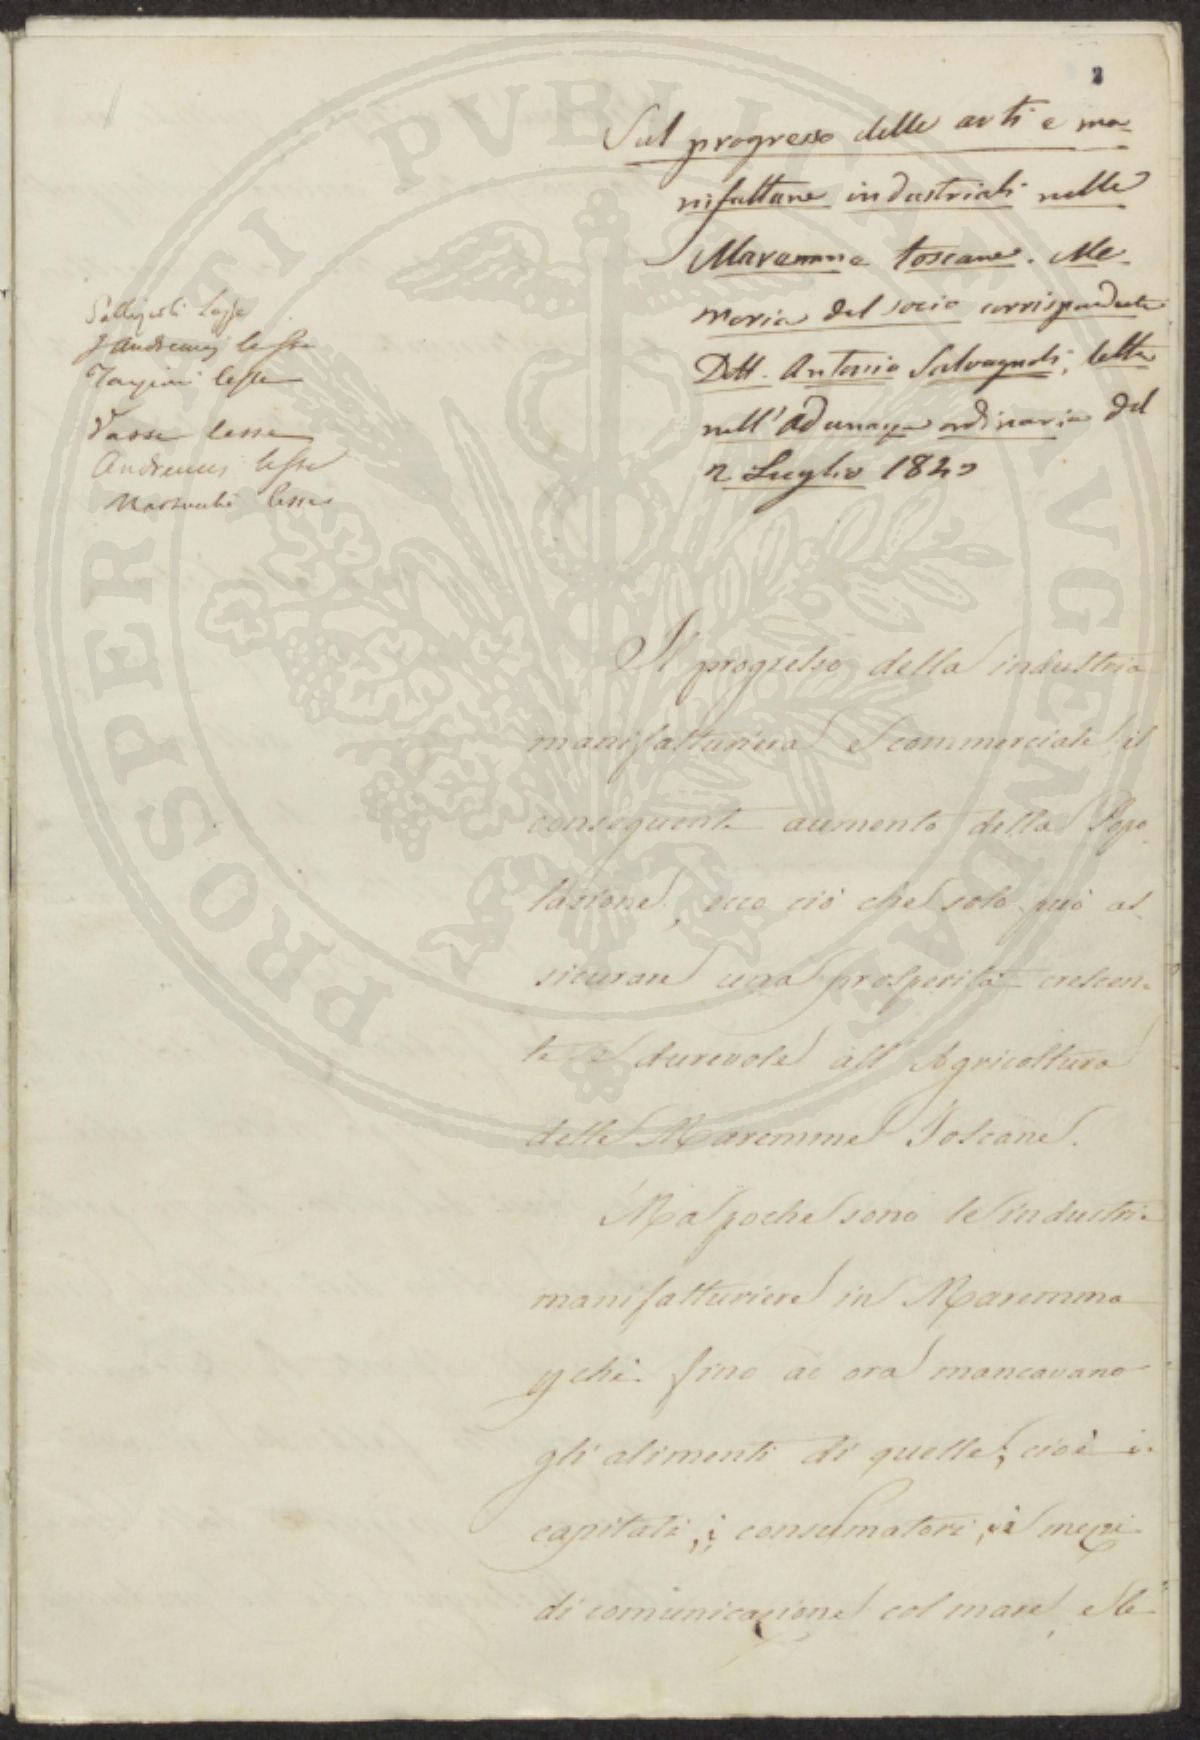 2
Sul progresso delle arti e ma-
nifatture industriali nelle
Maremme toscane. Me-
moria del socio corrispondente
Dott. Antonio Salvagnoli, letta
nell'Adunanza ordinaria del
2 Luglio 184
lesse
J Andreucci lesse
Targioni lesse
lesse
Andreucci lesse
lesse
Il progresso della industria
manifatturiera e commerciale il
conseguente aumento della Popo-
lazione, ecco ciò che solo può as-
sicurare una prosperità crescen-
te e durevole all'Agricoltura
delle Maremme Toscane.
Ma poche sono le industrie
manifatturiere in Maremma
chè fino ad ora mancavano
gli alimenti di quelle; cioè i
capitali, i consumatori, i mezzi
di comunicazione col mare, e le
PROSPERITATI PVBLICAE AVGENDAE